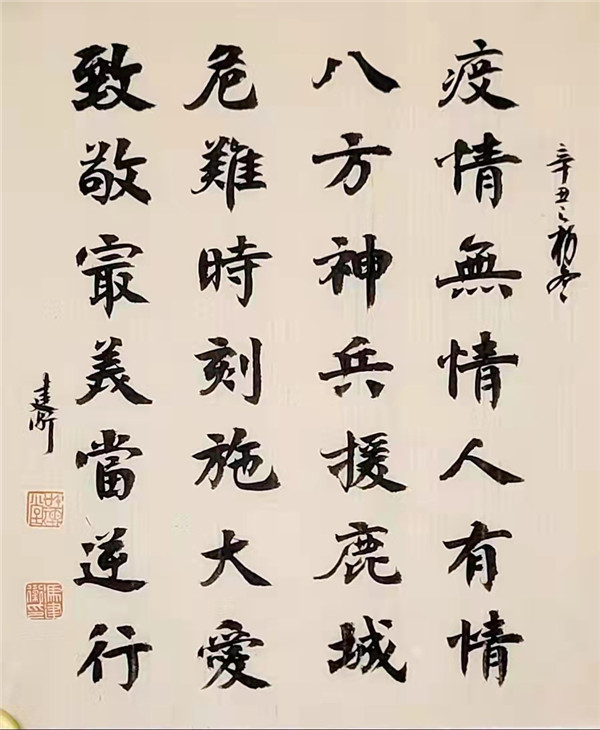 辛丑之初冬
疫情無情人有情
八方神兵援鹿城
危難時刻施大愛
致敬寂美當逆行
建衛